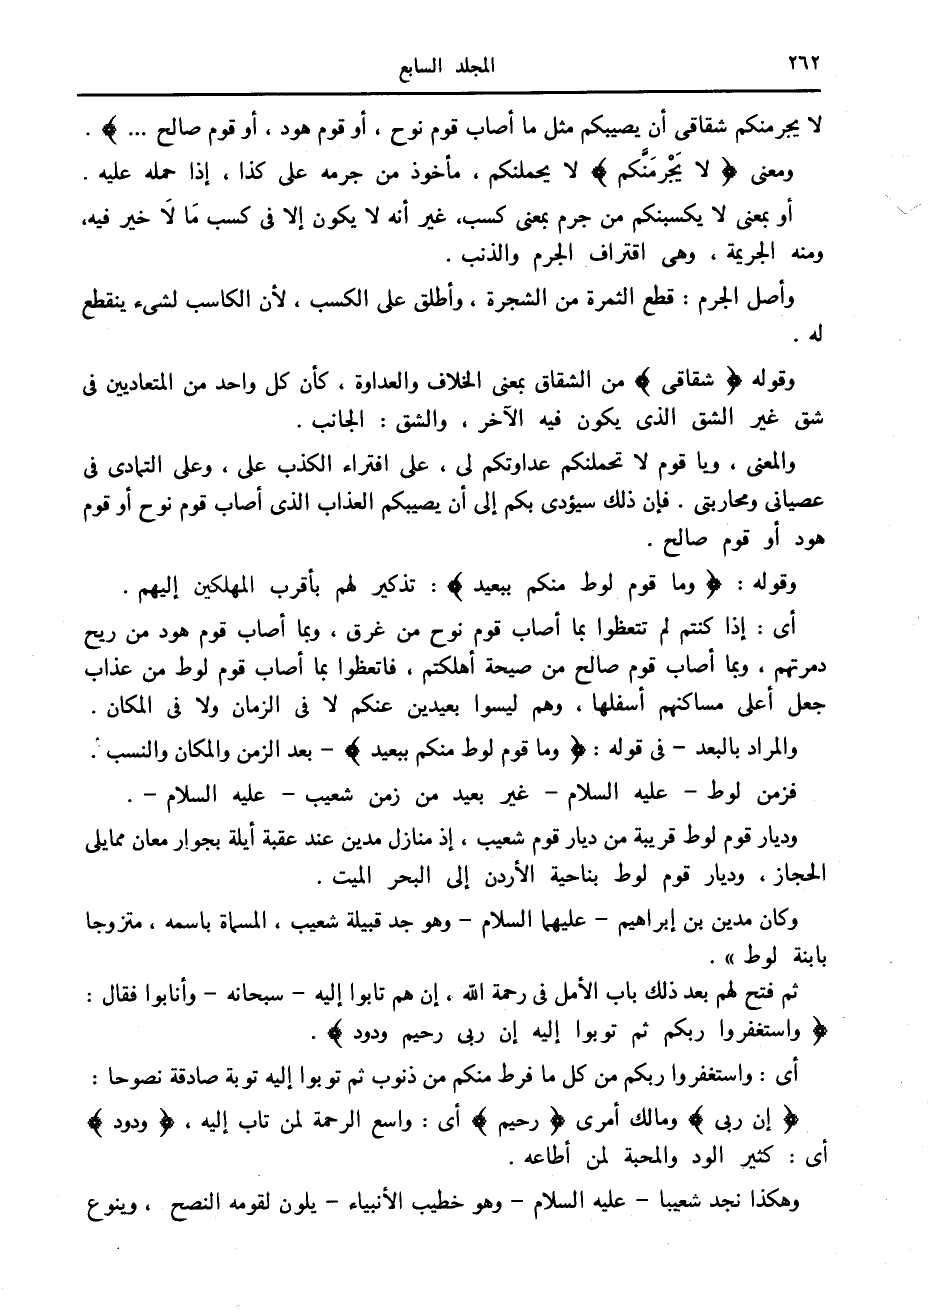 ٢٦٢
المجلد السابع
لا يجرمنكم شقاقى أن يصيبكم مثل ما أصاب قوم نوح ، أو قوم هود ، أو قوم صالح ... ﴾ .
ومعنى ﴿ لا يَجْرِمَنَّكم ﴾ لا يحملنكم ، مأخوذ من جرمه على كذا ، إذا حمله عليه .
أو بمعنى لا يكسبنكم من جرم بمعنى كسب، غير أنه لا يكون إلا فى كسب مَا لَا خير فيه،
ومنه الجريمة ، وهى اقتراف الجرم والذنب .
وأصل الجرم : قطع الثمرة من الشجرة ، وأطلق على الكسب ، لأن الكاسب لشىء ينقطع
له .
وقوله ﴿ شقاقى ﴾ من الشقاق بمعنى الخلاف والعداوة ، كأن كل واحد من المتعاديين فى
شق غير الشق الذى يكون فيه الآخر ، والشق : الجانب .
والمعنى ، ويا قوم لا تحملنكم عداوتكم لى ، على افتراء الكذب على ، وعلى التمادى فى
عصيانى ومحاربتى . فإن ذلك سيؤدى بكم إلى أن يصيبكم العذاب الذى أصاب قوم نوح أو قوم
هود أو قوم صالح .
وقوله : ﴿ وما قوم لوط منكم ببعيد ﴾ : تذكير لهم بأقرب المهلكين إليهم .
أى : إذا كنتم لم تتعظوا بما أصاب قوم نوح من غرق ، وبما أصاب قوم هود من ريح
دمرتهم ، وبما أصاب قوم صالح من صيحة أهلكتم ، فاتعظوا بما أصاب قوم لوط من عذاب
جعل أعلى مساكنهم أسفلها ، وهم ليسوا بعيدين عنكم لا فى الزمان ولا فى المكان .
والمراد بالبعد – فى قوله : ﴿ وما قوم لوط منكم ببعيد ﴾ – بعد الزمن والمكان والنسب .
فزمن لوط – عليه السلام – غير بعيد من زمن شعيب – عليه السلام – .
وديار قوم لوط قريبة من ديار قوم شعيب ، إذ منازل مدين عند عقبة أيلة بجوار معان ممايلى
الحجاز ، وديار قوم لوط بناحية الأردن إلى البحر الميت .
وكان مدين بن إبراهيم – عليهما السلام – وهو جد قبيلة شعيب ، المسماة باسمه ، متزوجا
بابنة لوط » .
ثم فتح لهم بعد ذلك باب الأمل فى رحمة الله ، إن هم تابوا إليه – سبحانه – وأنابوا فقال :
﴿ واستغفروا ربكم ثم توبوا إليه إن ربى رحيم ودود ﴾ .
أى : واستغفروا ربكم من كل ما فرط منكم من ذنوب ثم توبوا إليه توبة صادقة نصوحا :
﴿ إن ربى ﴾ ومالك أمرى ﴿ رحيم ﴾ أى : واسع الرحمة لمن تاب إليه ، ﴿ ودود ﴾
أى : كثير الود والمحبة لمن أطاعه .
وهكذا نجد شعيبا – عليه السلام – وهو خطيب الأنبياء – يلون لقومه النصح ، وينوع